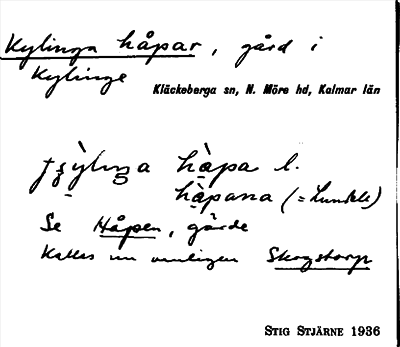 Kylinga håpar, gård i
Kylinge
Kläckeberga sn, N. Möre hd, Kalmar län
håpa l.
håpana (= Lundell)
Se Håpen, gårde
Kallas nu vanligen Skogstorp
STIG STJÄRNE 1936